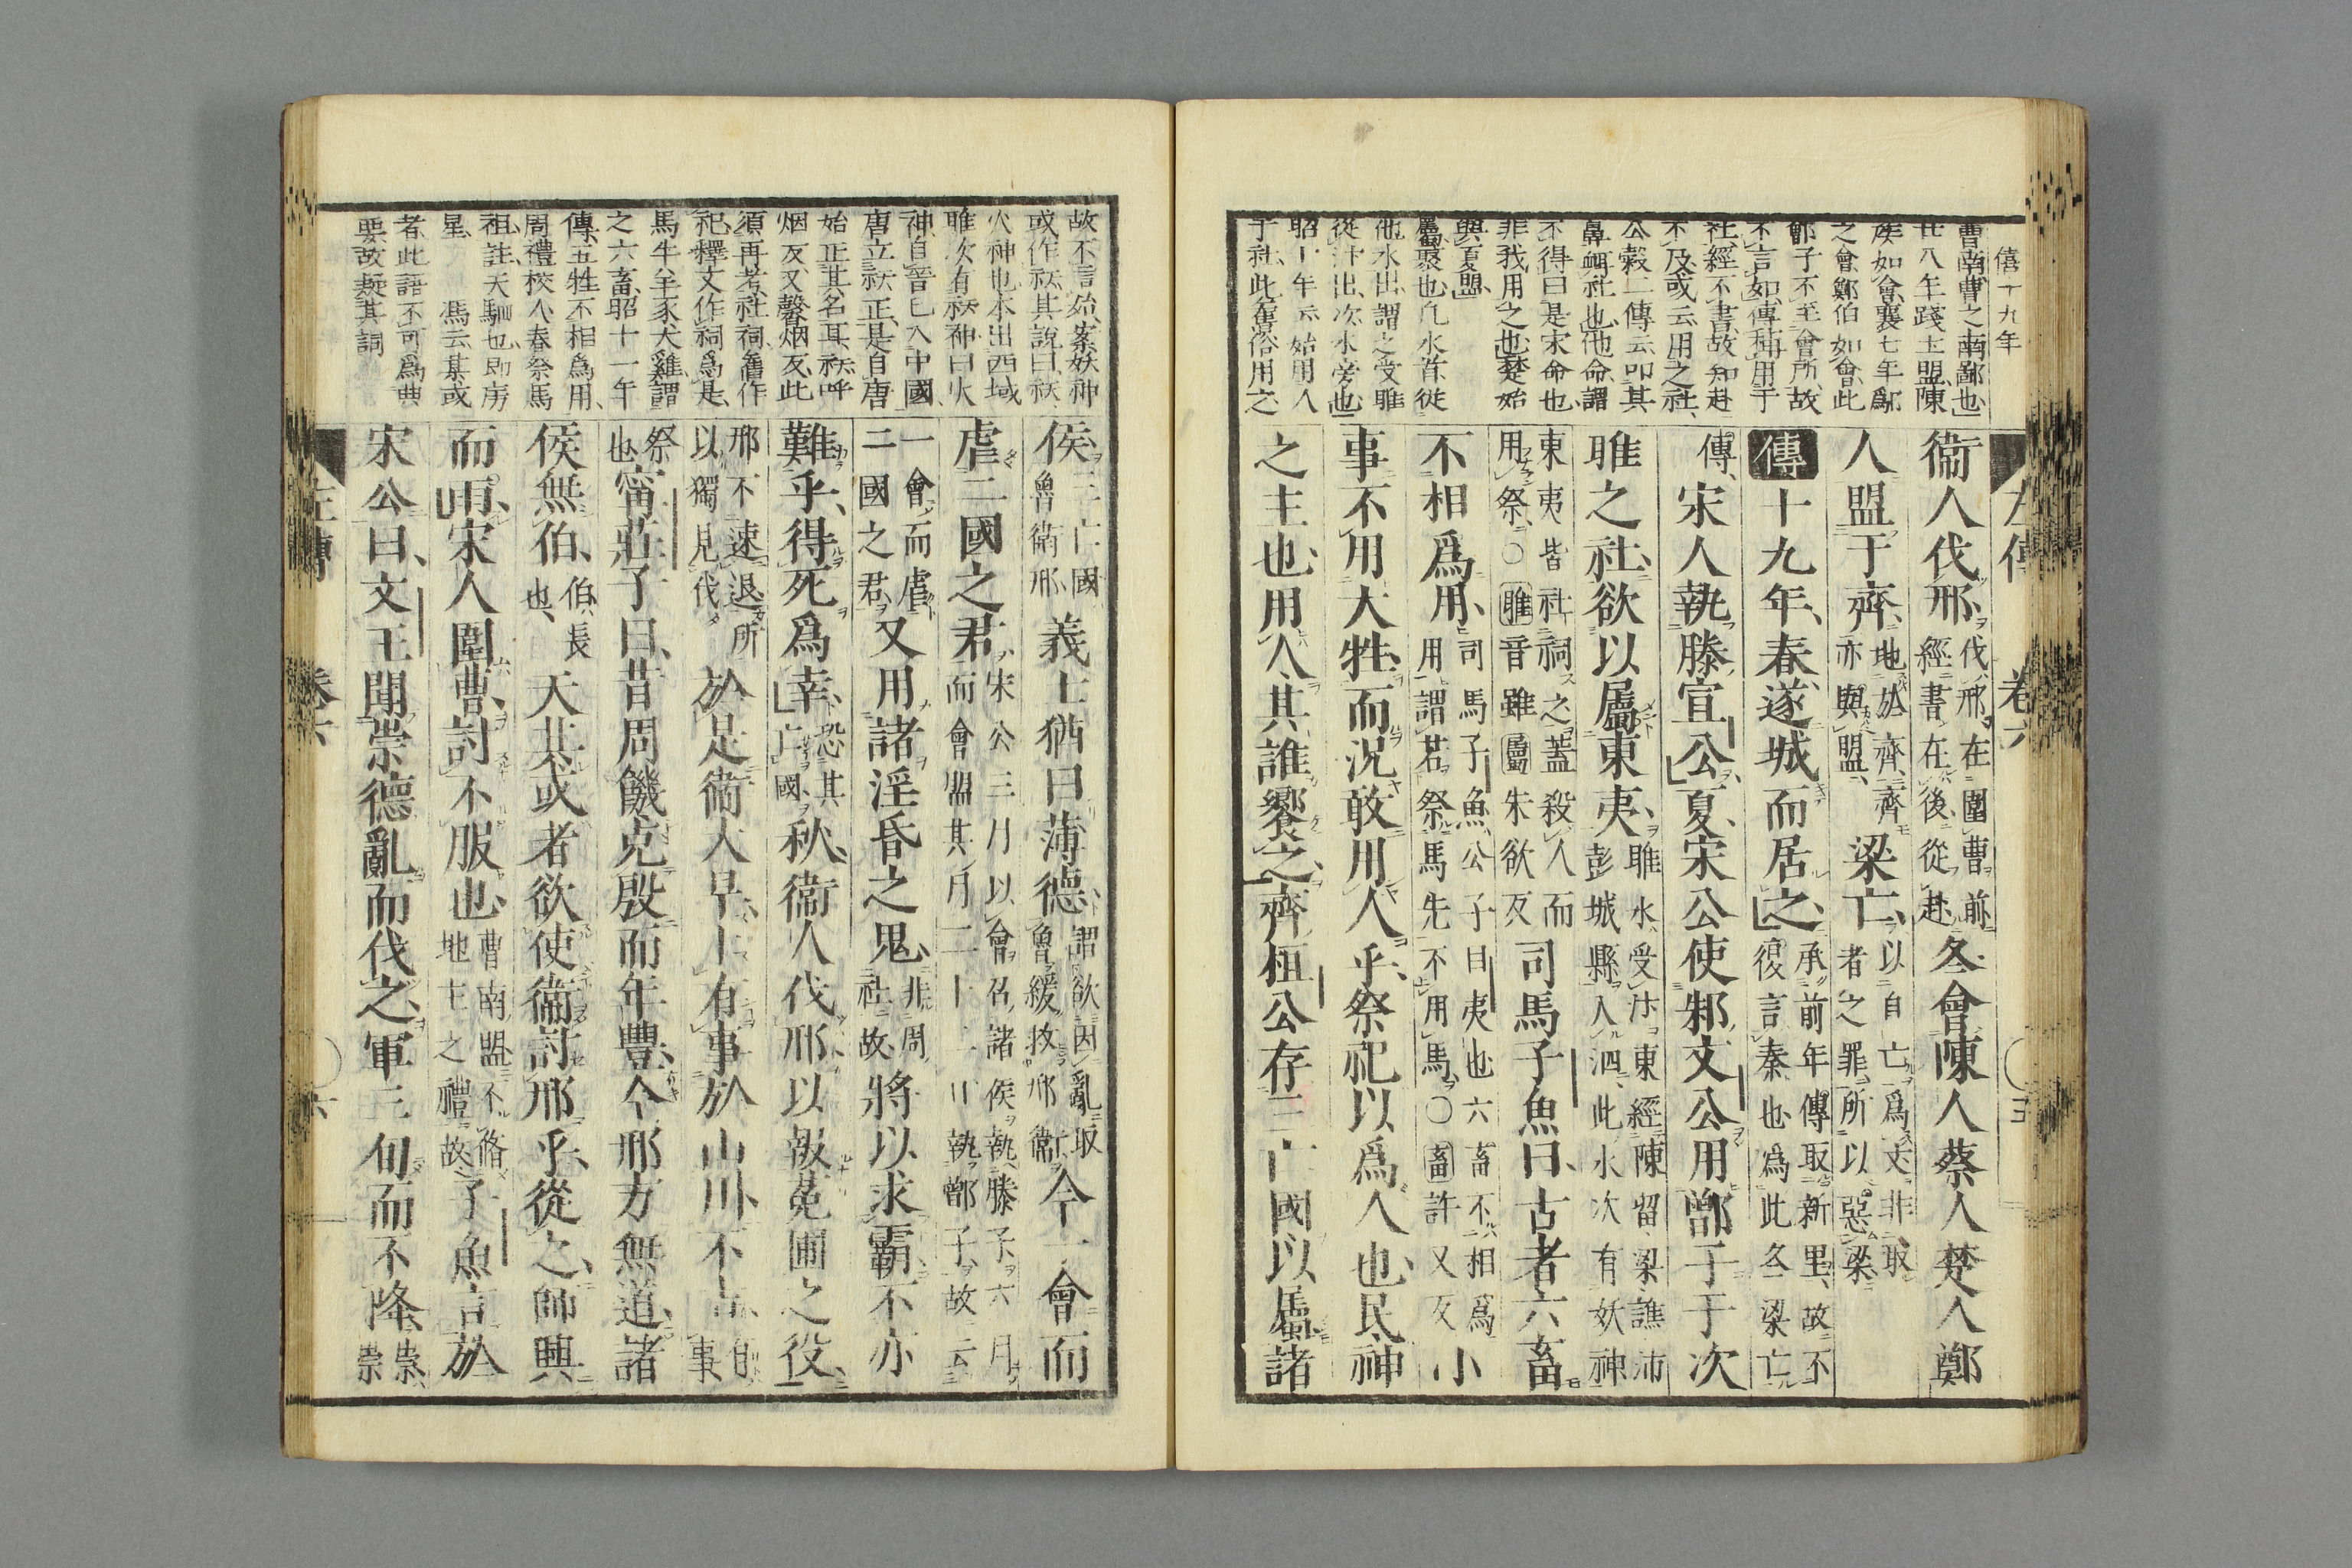 僖十九年
曹南曹之南鄙也
廿八年踐土盟陳
侯如會襄七年鄬
之會鄭伯如會此
鄫子不至會所故
不言如傳稱用于
社經不書故知赴
不及或云用之社
公穀二傳云叩其
鼻衈社也他命謂
不得曰是宋命也
非我用之也楚始
與夏盟
屬聚也凡水首從
他水出謂之受睢
從汴出次水旁也
昭十年云始用人
于社此舊俗用之
左傳 卷六
衞人伐邢伐邢在圍曹前經書在後從赴冬會陳人蔡人楚人鄭
人盟于齊地於齊齊亦與盟梁亡以自亡爲文非取者之罪所以惡梁
傳十九年春遂城而居之承前年傳取新里故不復言秦也爲此冬梁亡
傳宋人執滕宣公夏宋公使邾文公用鄫子于次
睢之社欲以屬東夷睢水受汴東經陳留梁譙沛彭城縣入泗此水次有妖神
東夷皆社祠之蓋殺人而用祭○睢音雖屬朱欲反司馬子魚曰古者六畜
不相爲用司馬子魚公子目夷也六畜不相爲用謂若祭馬先不用馬○畜許又反小
事不用大牲而況敢用人乎祭祀以爲人也民神
之主也用人其誰饗之齊桓公存三亡國以屬諸
故不言始案妖神
或作祅其說曰祅
火神也本出西域
睢次有祅神曰火
神自晉已入中國
唐立祅正是自唐
始正其名耳祅呼
烟反又馨烟反此
須再考社祠舊作
祀釋文作祠爲是
馬牛羊豕犬雞謂
之六畜昭十一年
傳五牲不相爲用
周禮校人春祭馬
祖註天駟也即房
星 馮云某或
者此語不可爲典
要故疑其詞
侯三亡國魯衞邢義士猶曰薄德謂欲因亂取魯緩救邢衞今一會而
虐二國之君宋公三月以會召諸侯執滕子六月而會盟其月二十二日執鄫子故云
一會而虐二國之君又用諸淫昏之鬼非周社故將以求霸不亦
難乎得死爲幸恐其亡國秋衞人伐邢以報菟圃之役
邢不速退所以獨見伐於是衞大旱卜有事於山川不吉有事
祭也甯莊子曰昔周饑克殷而年豐今邢方無道諸
侯無伯伯長也天其或者欲使衞討邢乎從之師興
而雨宋人圍曹討不服也曹南盟不脩地主之禮故子魚言於
宋公曰文王聞崇德亂而伐之軍三旬而不降崇崇
左傳 卷六 六